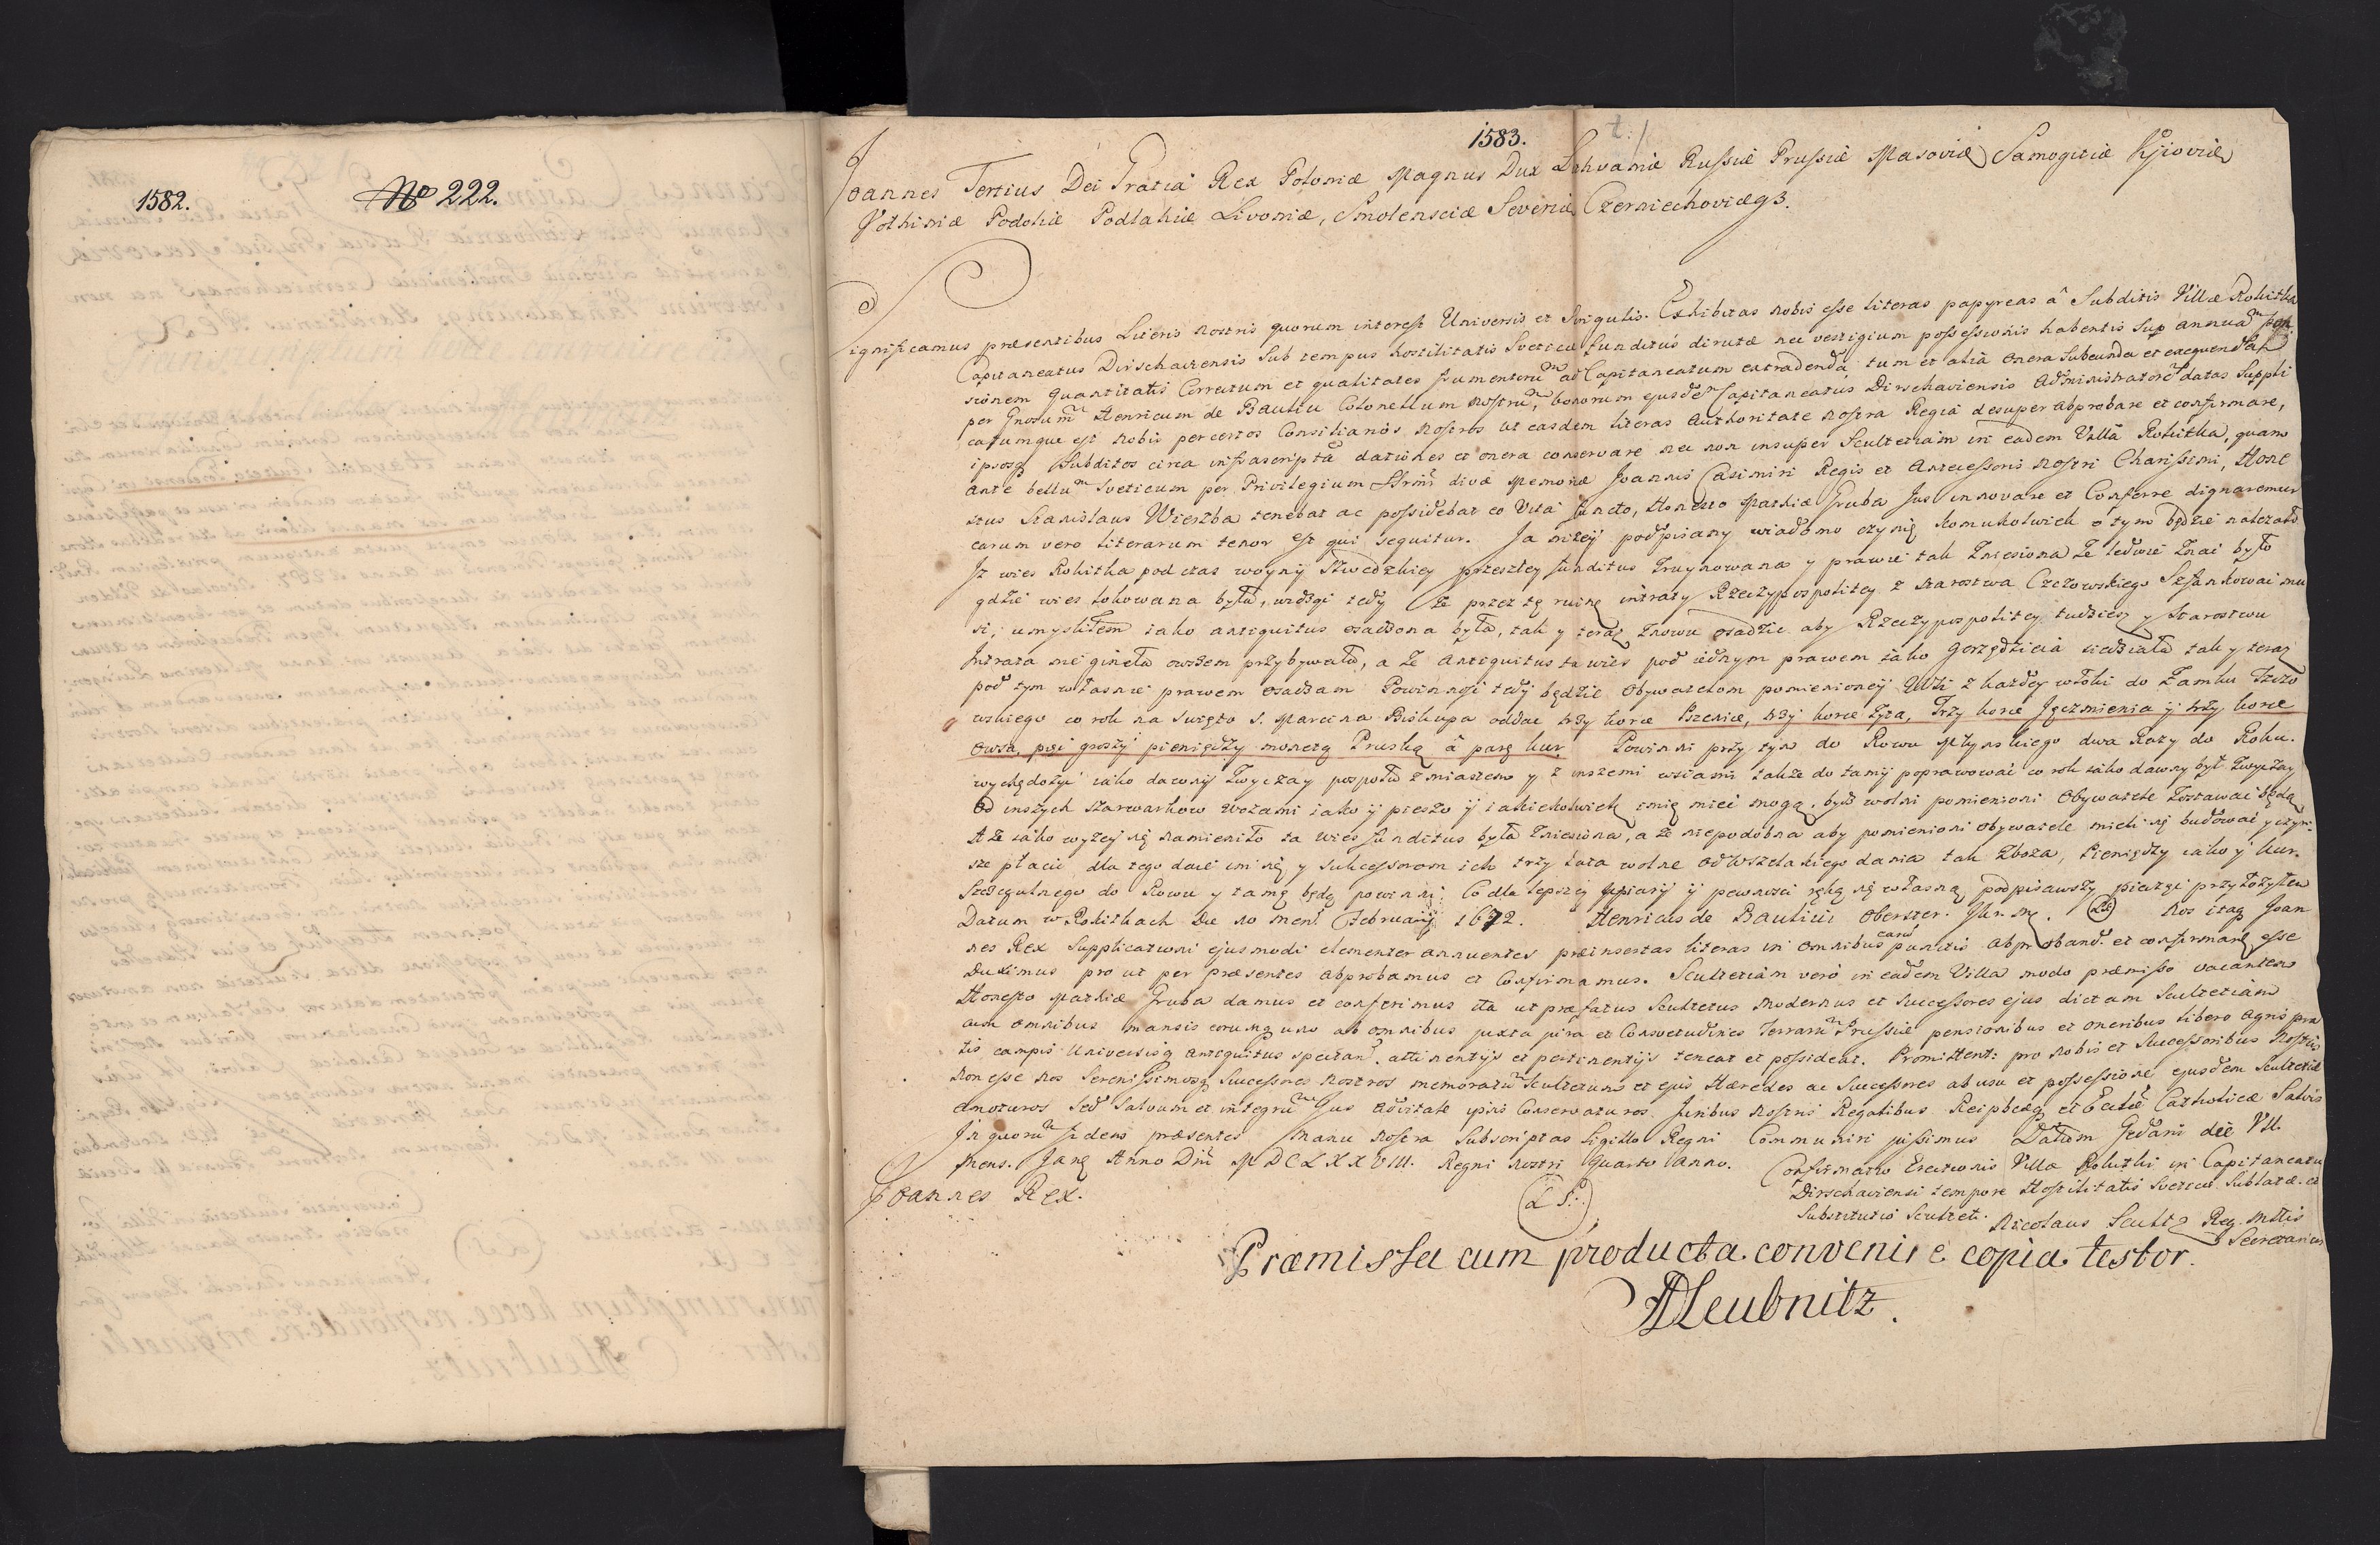 1582.
No 222.
1583.
Joannes Tertius Dei Gratia Rex Poloniæ Magnus Dux Lithvaniæ Russiæ Prussiæ Masoviæ Samogitiæ Kijoviæ
Volhiniæ Podoliæ Podlahiæ Livoniæ, Smolensciæ Severiæ Czerniechoviæq3.
Significamus præsentibus Literis nostris quorum interest Universis et Singulis. Exhibitas nobis esse literas papyreas â Subditis Villæ Rokitka
Capitaneatus Dirschaviensis Sub tempus hostilitatis Sveticæ funditus dirutæ nec vestigium possessionis habentis Sup annuam pen
sionem quantitatis Certatum et qualitates frumentorum ad Capitaneatum extradenda, tum et alia onera Subeunda et exequenda
per Gnosum Henricum de Bauliu Colonellum nostrum, bonorum ejusdem Capitaneatus Dirschaviensis Administratorem datas Suppli
catumque est nobis per certos Consiliarios nostros ut easdem literas Authoritate nostra Regia desuper abprobare et confirmare,
ipsosq Subditos circa infrascriptas dationes et onera conservare nec non insuper Scultetiam in eadem Villa Rokitka, quam
ante bellum Sveticum per Privilegium Srmi divæ Memoriæ Joannis Casimiri Regis et Antecessoris nostri Charissimi, Hone
stus Stanislaus Wierzba tenebat ac possidebat eo Vita functo, Honesto Mathiæ Gruba Jus innovare et Conferre dignaremur
earum vero literarum tenor est qui sequitur. Ja niżej podpisany wiadomo czynię komukolwiek o tym będzie należało
Jż wies Rokitka pod czas woyny Szwedzkiey przeszłey funditus zruynowana y prawie tak zniesiona że ledwie znać było
gdzie wies lokowana była, widząc tedy że przez tę ruinę intraty Rzeczypospolitey z starostwa Czczowskiego Szfankować mu
si, umyśliłem iako antiquitus osadzona była, tak y teraz znowu osadzić aby Rzeczypospolitey tudzież y Starostwu
Intrata nie gineła owszem przybywała, a że Antiquitus ta wies pod iednym prawem iako Gorzędzieia siedziała tak y teraz
pod tym własnie prawem osadzam Powinnosci tedy będzie Obywatelom pomienioney Wśi z każdey włoki do Zamku Tczow
skiego co rok na Swięto S. Marcina Biskupa oddać trzy korce Pszenice, trzy korce żyta, Trzy korce Jęczmienia y trzy korce
owsa, pięć groszy pieniędzy monetą Pruską â parę kur. Powinni przy tym do Rowu Młynskiego dwa Razy do Roku.
wychędożyć iako dawny zwyczay pospołu z miastem y z inszemi wsiami także do tamy poprawować co rok iako dawny był zwyczay
Od inszych szarwarkow wozami iako y pieszo y iakiekolwiek imię mieć mogą, być wolni pomienioni Obywatele zostawać będą
A że iako wyżey się namieniło ta wies funditus była zniesiona, a że niepodobna aby pomienioni obywatele mieli się budować y czyn
sze płacić, dla tego daie im się y sukcessorom ich trzy lata wolne od wszelakiego dania tak zboża, Pieniędzy iako y kur.
Szczegulnego do Rowu y tamę będą powinni: Co dla lepszey wiary y pewnosci ręką się własną podpisawszy pieczęć przyłożyłem
Datum w Rokitkach Die 10 mens. Februarij 1672. Henricus de Bauliu Oberster. Jkr. Mc. LS Nos itaq Joan
nes Rex Supplicationi ejusmodi clementer annuentes præinsertas literas in omnibus earum punctis abproband. et confirmand. esse
Duximus pro ut per præsentes abprobamus et Confirmamus. Scultetiam vero in eadem Villa modo præmisso vacantem
Honesto Mathiæ Gruba damus et conferimus ita ut præfatus Scultetus Modernus et Successores ejus dictam Scultetiam
cum omnibus mansis eorumq uno ab omnibus juxta jura et Consvetudines Terrarum Prussiæ pensionibus et oneribus libero agris pra
tis campis Universisq antiquitus spectan. attinentijs et pertinentijs teneat et possideat. Promittent: pro nobis et Successoribus Nostris
Non esse nos Serenissimosq Successores nostros memoratum Scultetum et ejus Hæredes ac Successores ab usu et possessione ejusdem Scultetiæ
Amoturos Sed Salvum et integrum Jus advitale ipsis Conservaturos. Juribus Nostris Regalibus Reipbcæq et Ecclæ Catholicæ Salvis
In quorum fidem præsentes Manu nostra Subscriptas Sigillo Regni Communiri jussimus Datum Gedani die VII.
Mens. Janr Anno Dni MDCLXXVIII. Regni nostri Quarto Anno.
Joannes Rex.
L S.
Confirmatio Erectionis Villæ Rokitki in Capitaneatu
Dirschaviensi tempore Hostilitatis Sveticæ Sublatæ. et
Substitutio Sculteti.
Nicolaus Scultz Reg. Mttis
Secretarius
Præmissa cum producta convenire copia testor.
ADLeubnitz.